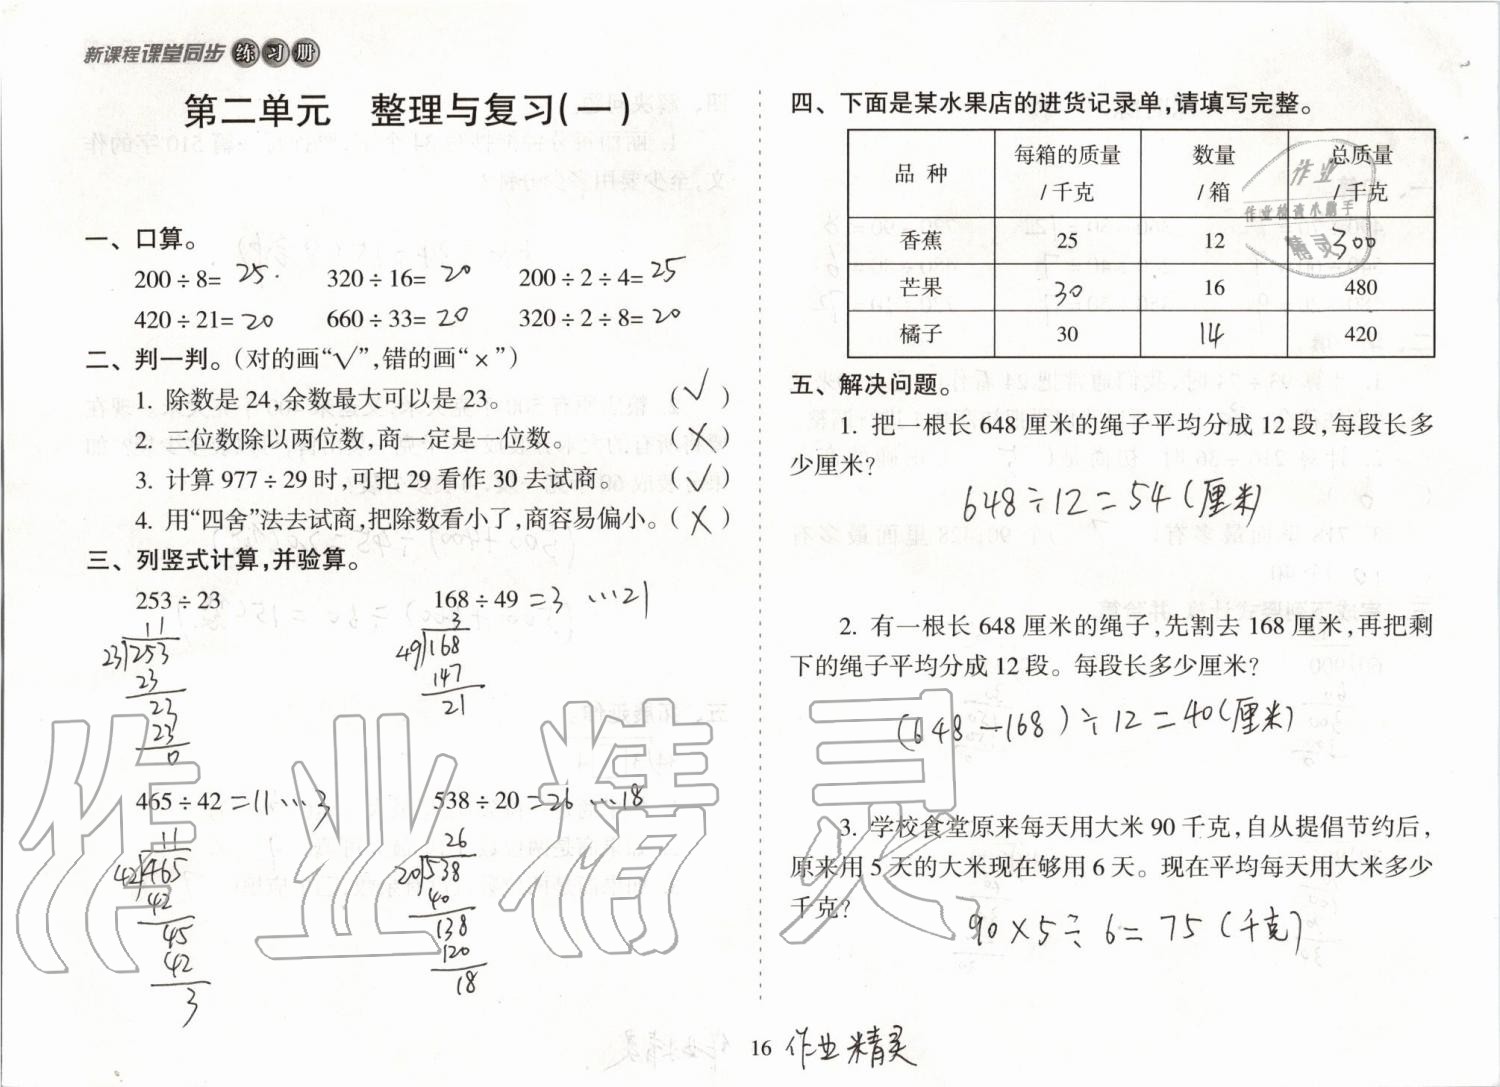 新课程课堂同步练习册
第二单元 整理与复习(一)
一、口算。
200÷8= 25. 320÷16= 20 200÷2÷4= 25
420÷21= 20 660÷33= 20 320÷2÷8= 20
二、判一判。(对的画“√”,错的画“×”)
1. 除数是24,余数最大可以是23。 (√)
2. 三位数除以两位数,商一定是一位数。 (×)
3. 计算977÷29时,可把29看作30去试商。 (√)
4. 用“四舍”法去试商,把除数看小了,商容易偏小。(×)
三、列竖式计算,并验算。
253÷23 168÷49=3 …21
11 3
23 253 49 168
23 147
23 21
23
0
465÷42=11…3 538÷20=26 …18
11 26
42 465 20 538
42 40
45 138
42 120
3 18
四、下面是某水果店的进货记录单,请填写完整。
品种 每箱的质量/千克 数量/箱 总质量/千克
香蕉 25 12 300
芒果 30 16 480
橘子 30 14 420
五、解决问题。
1. 把一根长648厘米的绳子平均分成12段,每段长多
少厘米?
648÷12=54(厘米)
2. 有一根长648厘米的绳子,先割去168厘米,再把剩
下的绳子平均分成12段。每段长多少厘米?
(648-168)÷12=40(厘米)
3. 学校食堂原来每天用大米90千克,自从提倡节约后,
原来用5天的大米现在够用6天。现在平均每天用大米多少
千克?
90×5÷6=75(千克)
作业
作业检查小助手
精灵
作业精灵
16 作业精灵